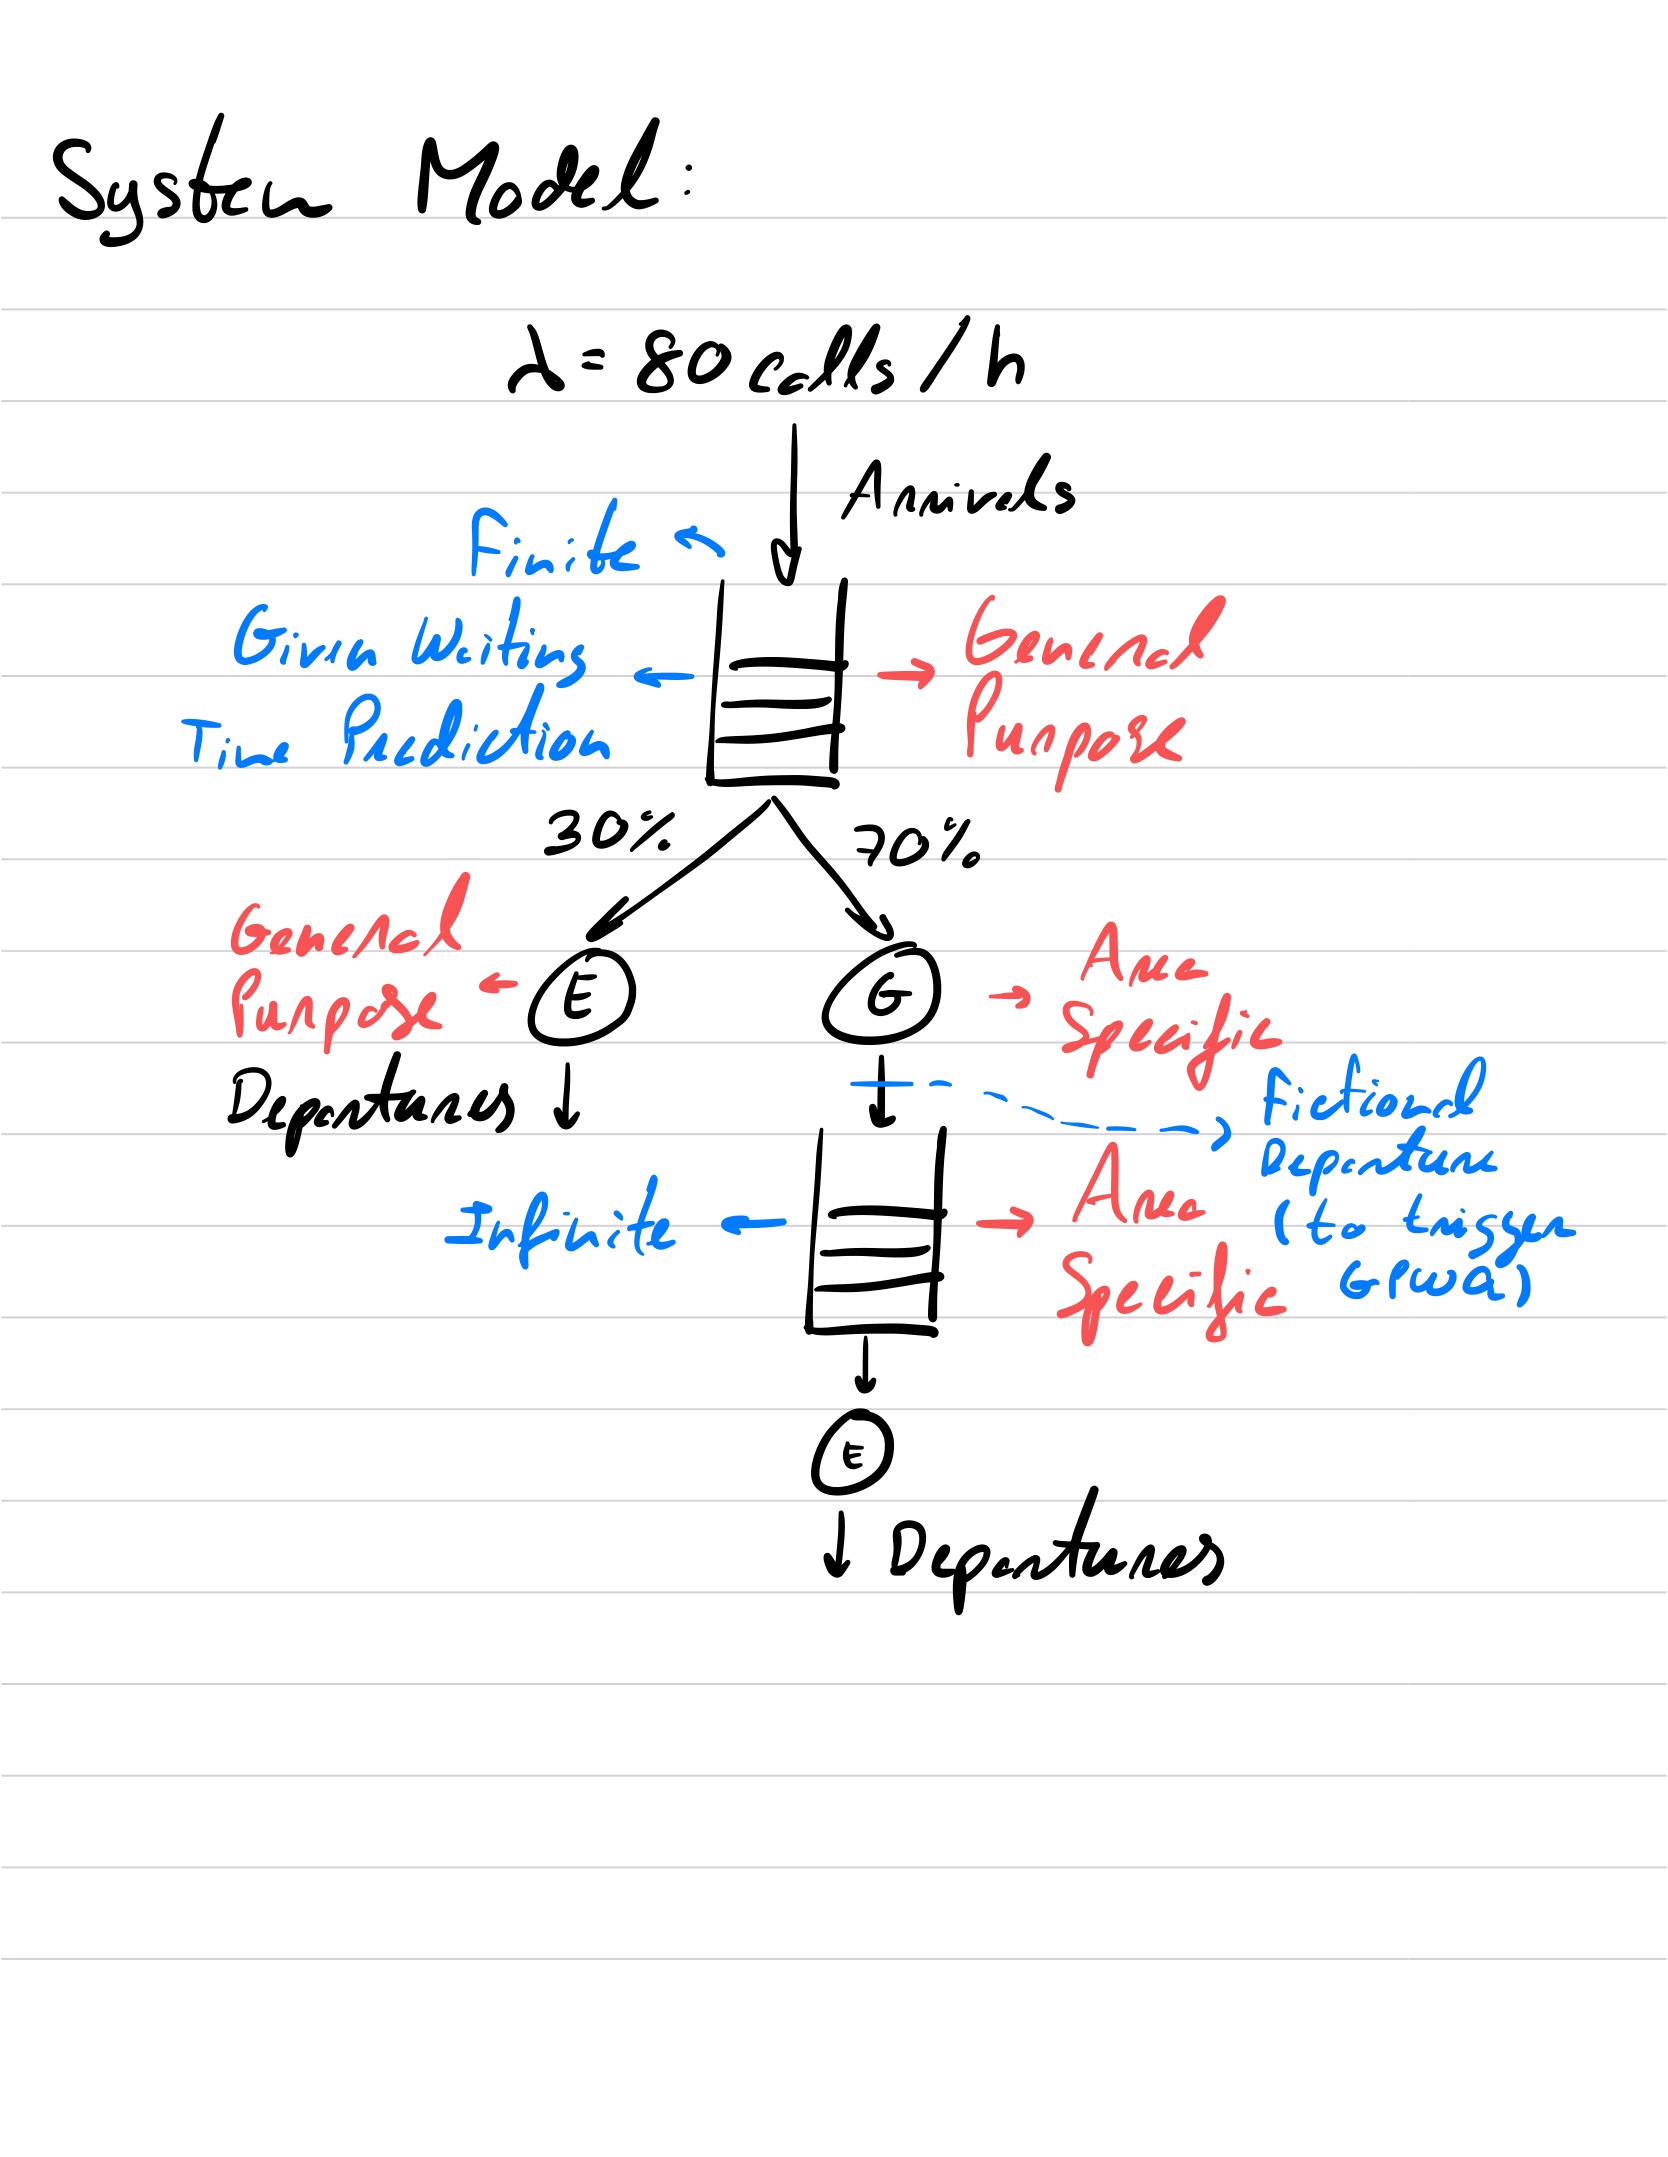 System Model:
λ = 80 calls / h
Arrivals
Finite
Given Waiting
Time Prediction
General
Purpose
30%
70%
General
Purpose
E
G
Area
Specific
Departures
Fictional
Departure
(to trigger
GPWQ)
Infinite
Area
Specific
E
Departures